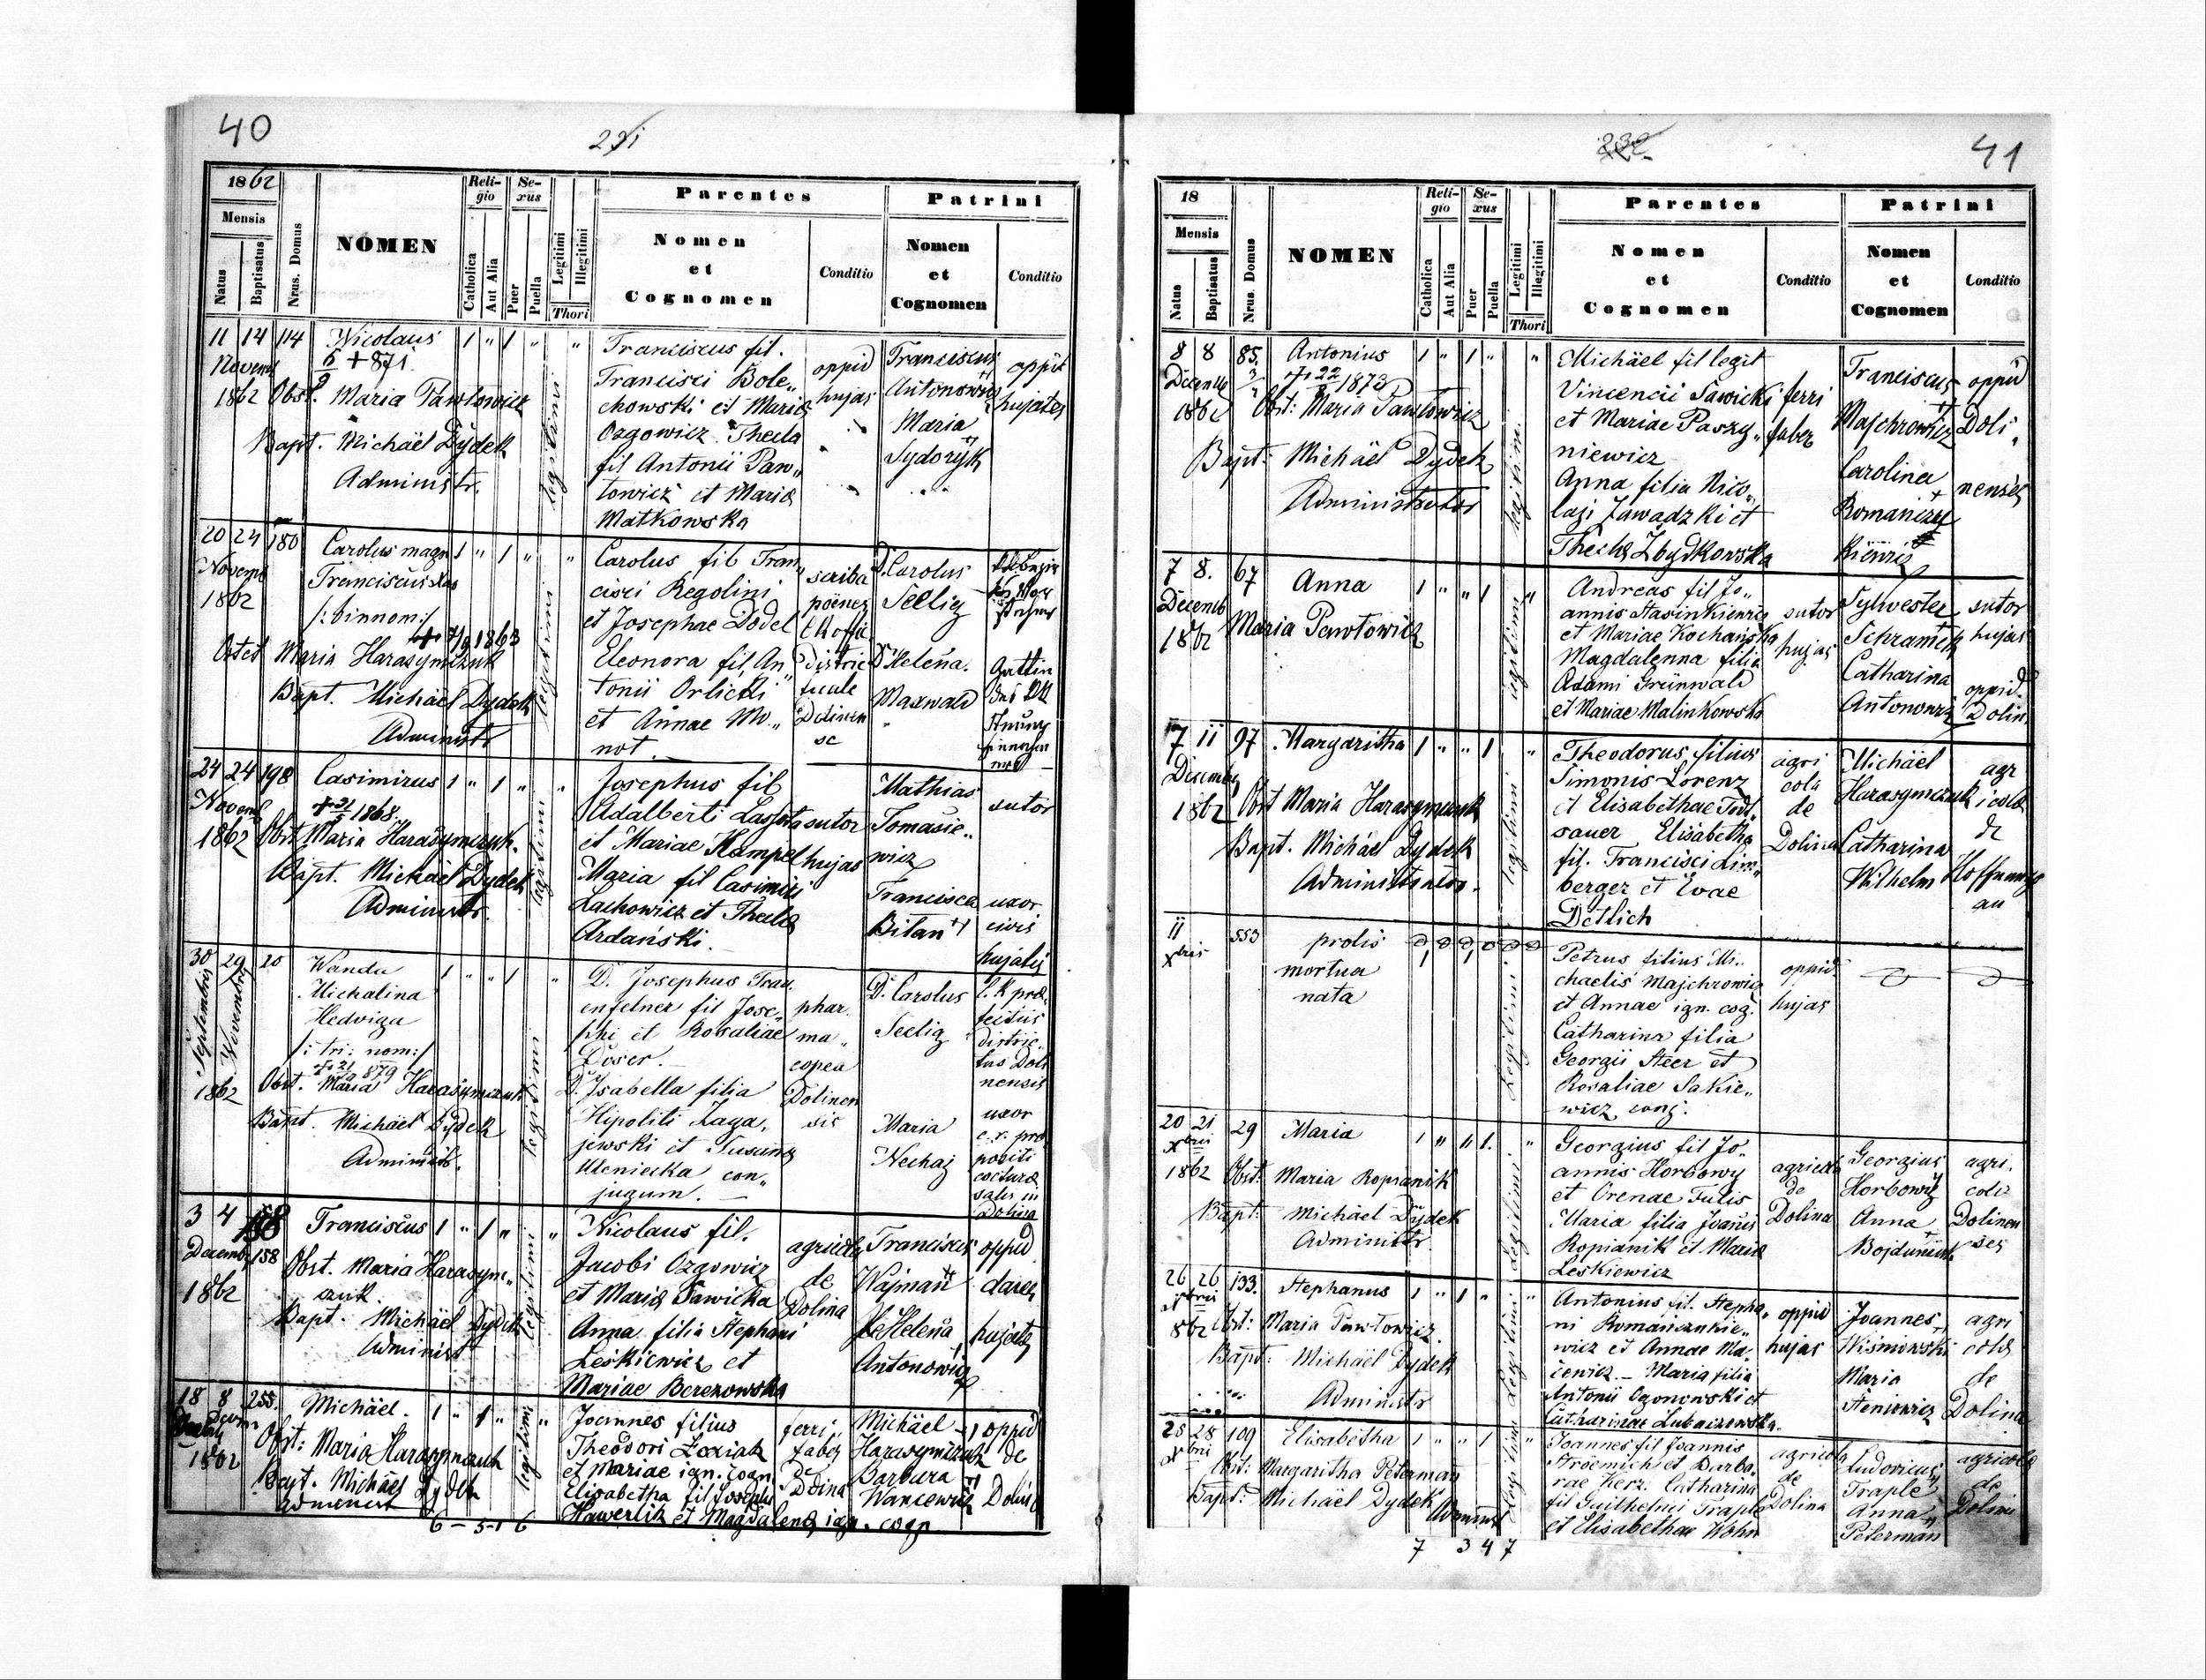 40
231
1862
Mensis
Natus
Baptisatus
Nrus. Domus
NOMEN
Reli-
gio
Catholica
Aut Alia
Se-
xus
Puer
Puella
Legitimi
Illegitimi
Thori
Parentes
Nomen
et
Cognomen
Conditio
Patrini
Nomen
et
Cognomen
Conditio
11 14 114 Nicolaus 1 " 1 " "
Novemb
1862 Obst. Maria Pawłowicz
Bapt. Michäel Dydek
Administr.
legitimi
Franciscus fil.
Francisci Bole„
chowski et Maria
Ozgowicz Thecla
fil Antonii Paw„
łowicz et Maria
Matkowska
oppid
hujas
Franciscus
Antonowicz
Maria
Sydoryk
oppid
hujates
20 24 180 Carolus magn 1 " 1 " "
Novemb
1862
Franciscus Xav
/: binnom:/
7/9 1863
Obstet Maria Harasymczuk
Bapt. Michäel Dydek
Administr
legitimi
Carolus fil Fran„
cisci Regolini
et Josephae Dodel
Eleonora fil An„
tonii Orlicki
et Annae Mo„
not
scriba
Distric
D. Carolus
Seelig
D. Helena
Maxwald
Gattin
24 24 198 Casimirus 1 " 1 " "
Novemb
1868
1862 Obst Maria Harasymczuk.
Bapt. Michäel Dydek
Administr.
legitimi
Josephus fil
Adalberti Lassota
et Mariae Hampel
Maria fil Casimiri
Lachowicz et Thecla
Ardański.
sutor
hujas
Mathias
Tomasie„
wicz
Francisca
Bilan
sutor
uxor
civis
hujatis
30 29 20 Wanda 1 " " 1 "
Septembris
Novembris
1862
Michalina
Hedviga
/: tri: nom:/
879
Obst. Maria Harasymczuk
Bapt. Michäel Dydek
Administr.
legitimi
D. Josephus Trau„
enfelner fil Jose„
phi et Rosaliae
Doser.
D. Isabella filia
Hipoliti Zaga„
jewski et Susana
Uleniecka con„
jugum.
phar„
ma„
copea
Dolinen
sis
D. Carolus
Seelig
Maria
Nechaj
C. K præ„
fectus
distric„
tus Doli
nensis
uxor
c. r. præ
positi
cocturæ
salis in
Dolina
3 4 158 Franciscus 1 " 1 " "
Decemb 158
1862
Obst. Maria Harasym„
czuk
Bapt. Michäel Dydek
Administ
legitimi
Nicolaus fil.
Jacobi Ozgowicz
et Maria Sawicka
Anna filia Stephani
Leskiewicz et
Mariae Berezowska
agricola
de
Dolina
Franciscus
Wajman
Helena
Antonowicz
oppid
hujates
18 8 255. Michäel. 1 " 1 " "
1862
Obst: Maria Harasymczuk
Bapt. Michäel Dydek
Administ
legitimi
Joannes filius
Theodori Lexiak
et Mariae ign. cogn.
Elisabetha fil Josephi
Hawerlik et Magdalena ign. cogn
ferri
faber
de
Dolina
Michäel
Harasymczuk
Barbara
Wancewicz
oppid
de
Dolina
6 – 5 – 1 6
232
41
18
Mensis
Natus
Baptisatus
Nrus. Domus
NOMEN
Reli-
gio
Catholica
Aut Alia
Se-
xus
Puer
Puella
Legitimi
Illegitimi
Thori
Parentes
Nomen
et
Cognomen
Conditio
Patrini
Nomen
et
Cognomen
Conditio
8 8 85. Antonius 1 " 1 " "
Decemb
1862
1873
Obst: Maria Pawłowicz
Bapt: Michäel Dydek
Administrator
legitimi
Michäel fil legit
Vincencii Sawicki
et Mariae Paszy„
niewicz
Anna filia Nico„
lai Zawadzki et
Thecla Zbydkowska
ferri
faber
Franciscus
Majchrowicz
Carolina
Romanczu
kiewicz
oppid
Doli„
nenses
7 8. 67 Anna 1 " " 1 "
Decemb
1862
Maria Pawłowicz
legitimi
Andreas fil Jo„
annis Stasinkiewicz
et Mariae Kochańska
Magdalenna filia
Adami Grünwald
et Mariae Malinkowska
sutor
hujas
Sylvester
Schramek
Catharina
Antonowicz
sutor
hujas
oppid.
Dolin
7 11 97 Margaritha 1 " " 1 "
Decemb
1862 Obst Maria Harasymczuk
Bapt. Michäel Dydek
Administrator.
legitimi
Theodorus filius
Simonis Lorenz
et Elisabethae Todt„
sauer Elisabetha
fil. Francisci Lim„
berger et Evae
Detlich
agri
cola
de
Dolina
Michäel
Harasymczuk
Catharina
Wilhelm
agr
icola
de
Hoffnungs
au
11 553 prolis
Xbris
mortua
nata
legitimi
Petrus filius Mi„
chaelis Majchrowicz
et Annae ign. cog.
Catharina filia
Georgii Steer et
Rosaliae Sakie„
wicz conj.
oppid.
hujas
20 21 29 Maria 1 " " 1. "
Xbris
1862 Obst: Maria Ropianik
Bapt: Michäel Dydek
Administr
legitimi
Georgius fil Jo„
annis Horbowy
et Orenae Fulis
Maria filia Joanis
Ropianik et Maria
Leskiewicz
agricola
de
Dolina
Georgius
Horbowy
Anna
agri„
colæ
Dolinen
ses
26 26 133. Stephanus 1 " 1 " "
Xbris
862 Obst: Maria Pawłowicz.
Bapt: Michäel Dydek
Administr
legitimi
Antonius fil. Stepha„
ni Romańczukie„
wicz et Annae Ma„
ciewicz. – Maria filia
Antonii Ozonowski et
Catharinae Lubaczewska.
oppid
hujas
Joannes
Wismiowski
Maria
Steniewicz
agri
colæ
de
Dolina
25 28 109 Elisabetha 1 " " 1 "
Xbris
Obst: Margaritha Peterman
Bapt: Michäel Dydek
Administ
legitimi
Joannes fil Joannis
Stroemich et Barba„
rae Kerz. Catharina
fil Guilhelmi Traple
et Elisabethae Wohn
agricola
de
Dolina
Ludovicus
Traple
Anna
Peterman
agricolæ
de
Dolina
7 3 4 7